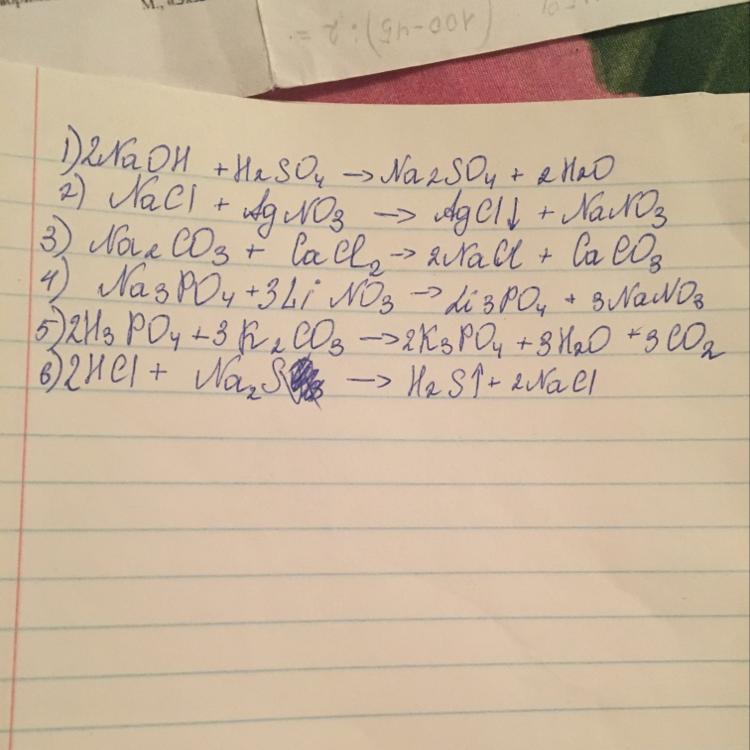 (100-45):2=
1) 2NaOH + H2SO4 → Na2SO4 + 2H2O
2) NaCl + AgNO3 → AgCl↓ + NaNO3
3) Na2CO3 + CaCl2 → 2NaCl + CaCO3
4) Na3PO4 + 3LiNO3 → Li3PO4 + 3NaNO3
5) 2H3PO4 + 3K2CO3 → 2K3PO4 + 3H2O + 3CO2
6) 2HCl + Na2S → H2S↑ + 2NaCl